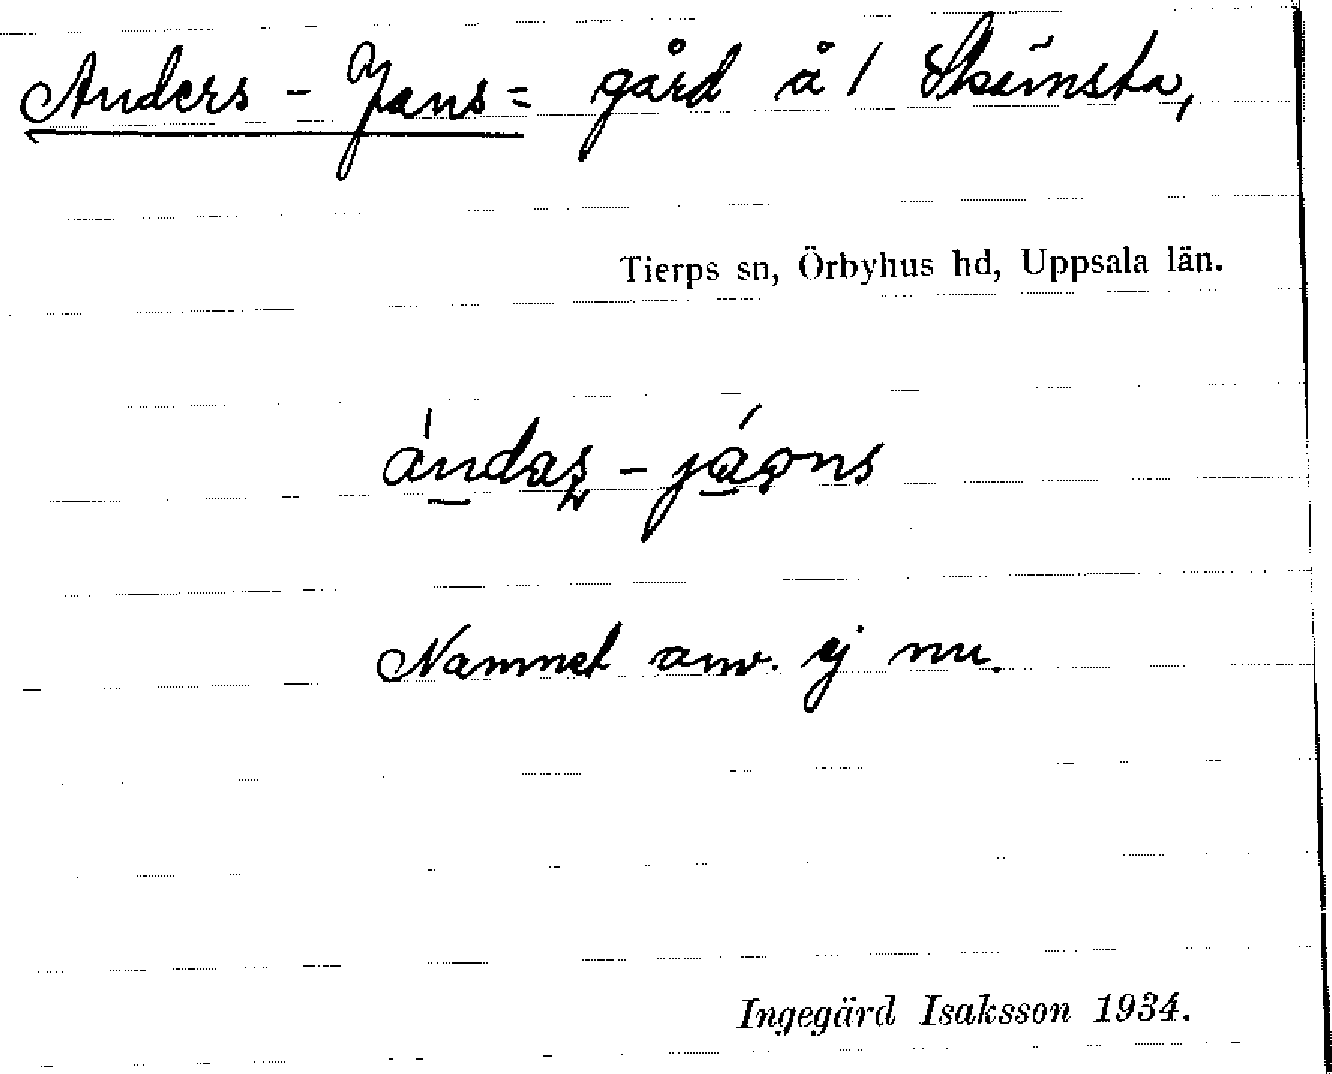 Anders-Jans= gård å 1 Skämsta,
Tierps sn, Örbyhus hd, Uppsala län.
Namnet anv. ej nu.
Ingegärd Isaksson 1934.